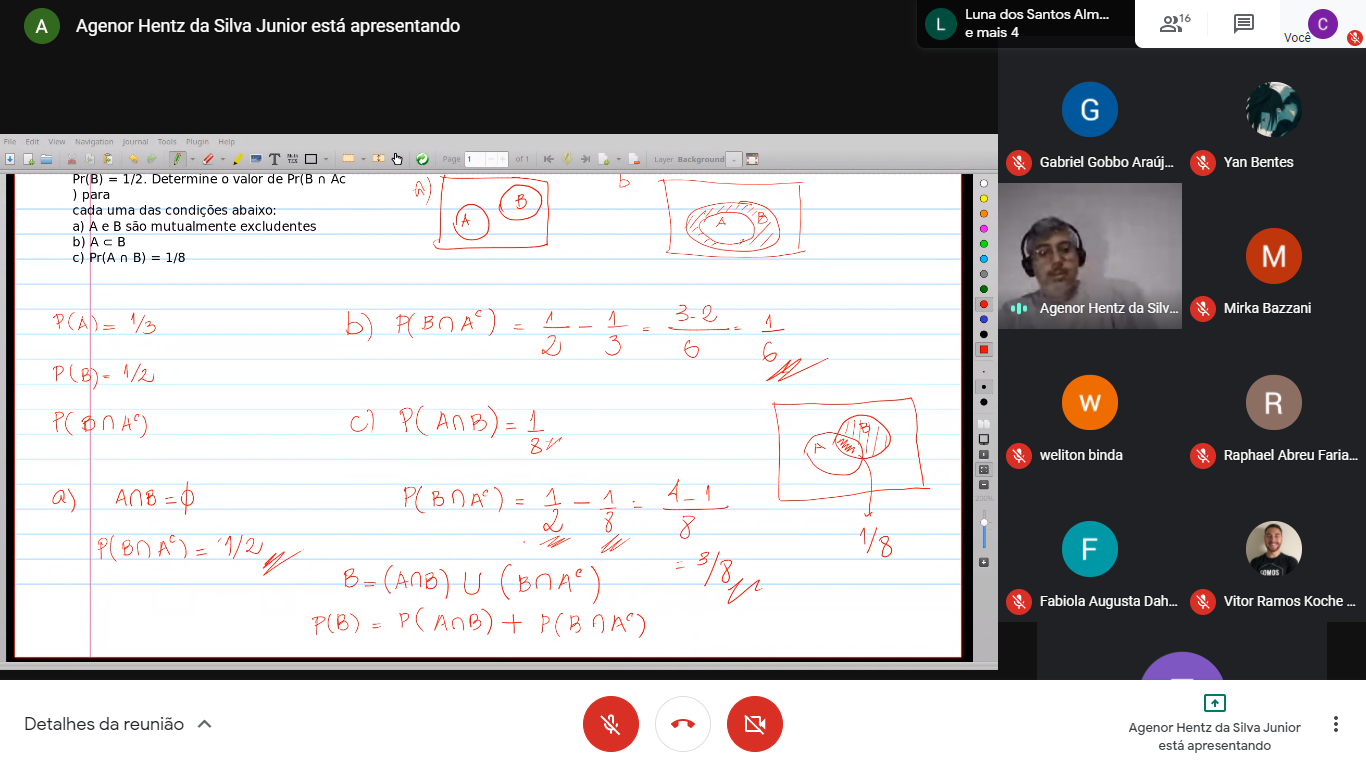 A Agenor Hentz da Silva Junior está apresentando
L Luna dos Santos Alm...
e mais 4
16
Você C
File Edit View Navigation Journal Tools Plugin Help
Page 1 of 1 Layer Background
Pr(B) = 1/2. Determine o valor de Pr(B ∩ Ac
) para
cada uma das condições abaixo:
a) A e B são mutualmente excludentes
b) A ⊂ B
c) Pr(A ∩ B) = 1/8
a) A B
b A B
P(A) = 1/3
P(B) = 1/2
P(B∩Aᶜ)
a) A∩B = ϕ
P(B∩Aᶜ) = 1/2
b) P(B∩Aᶜ) = 1/2 − 1/3 = 3-2/6 = 1/6
c) P(A∩B) = 1/8
P(B∩Aᶜ) = 1/2 − 1/8 = 4-1/8
= 3/8
A B
1/8
B = (A∩B) ∪ (B∩Aᶜ)
P(B) = P(A∩B) + P(B∩Aᶜ)
200%
G
Gabriel Gobbo Araúj...
Yan Bentes
Agenor Hentz da Silv...
M
Mirka Bazzani
w
weliton binda
R
Raphael Abreu Faria...
F
Fabiola Augusta Dah...
SOMOS
Vitor Ramos Koche ...
Detalhes da reunião
Agenor Hentz da Silva Junior
está apresentando